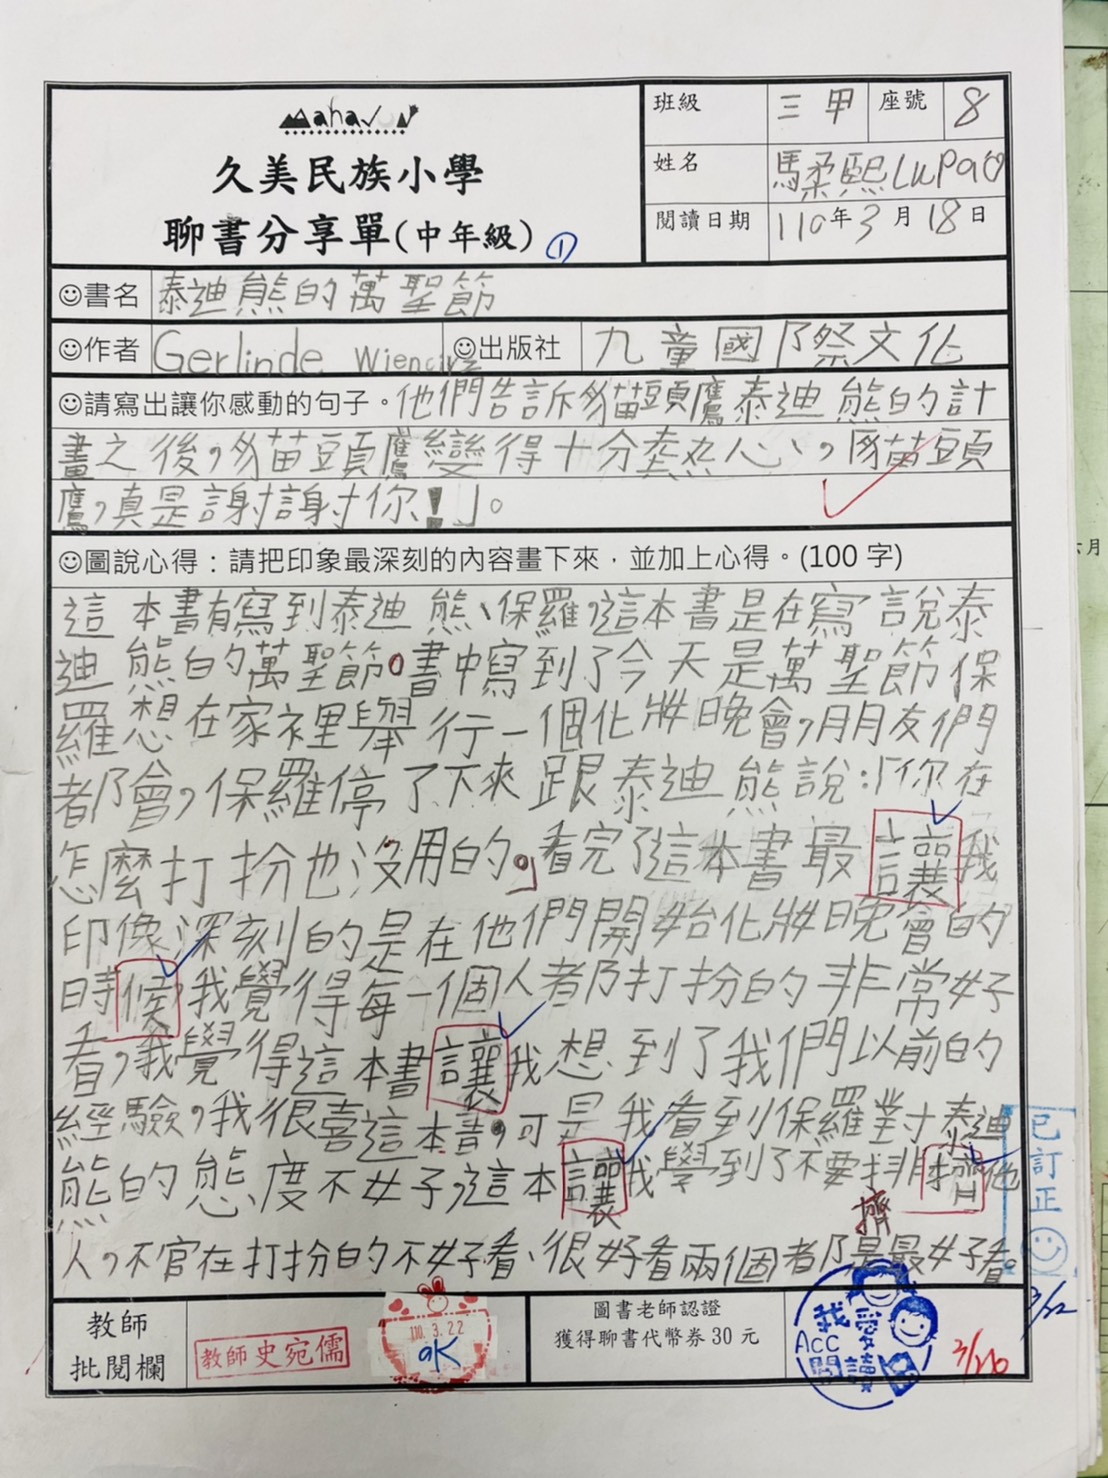 Mahavun
久美民族小學
聊書分享單(中年級) ①
班級 三甲 座號 8
姓名 馬柔熙 Lupao
閱讀日期 110年3月18日
☺書名 泰迪熊的萬聖節
☺作者 Gerlinde Wiencirz ☺出版社 九童國際文化
☺請寫出讓你感動的句子。他們告訴貓頭鷹泰迪熊的計
畫之後,貓頭鷹變得十分熱心、,「貓頭
鷹,真是謝謝你!」。
☺圖說心得:請把印象最深刻的內容畫下來,並加上心得。(100字)
這本書有寫到泰迪熊、保羅,這本書是在寫說泰
迪熊的萬聖節。書中寫到了今天是萬聖節保
羅想在家裡舉行一個化妝晚會,朋友們
都會,保羅停了下來跟泰迪熊說:「你在
怎麼打扮也沒用的。」看完了這本書最讓我
印像深刻的是在他們開始化妝晚會的
時候,我覺得每一個人都打扮的非常好
看,我覺得這本書讓我想到了我們以前的
經驗,我很喜這本書,可是我看到保羅對泰迪
熊的態度不好,這本讓我學到了不要排擠他
擠
人,不官在打扮的不好看、很好看兩個都是最好看。
已訂正
3/22
教師
批閱欄
教師史宛儒
110.3.22
OK
圖書老師認證
獲得聊書代幣券30元
我愛
ACC
閱讀
3/26
六月